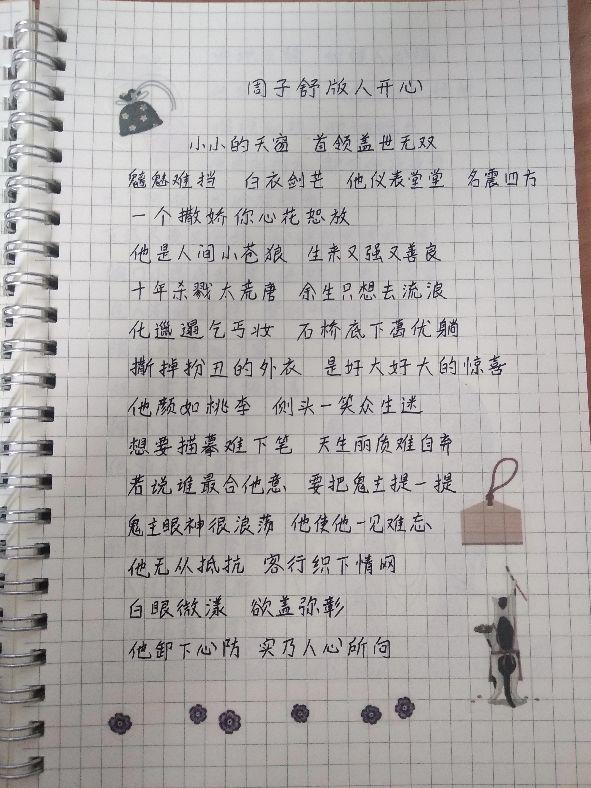 周子舒版人开心
小小的天窗 首领盖世无双
魑魅难挡 白衣剑芒 他仪表堂堂 名震四方
一个撒娇你心花怒放
他是人间小苍狼 生来又强又善良
十年杀戮太荒唐 余生只想去流浪
化邋遢乞丐妆 石桥底下葛优躺
撕掉扮丑的外衣 是好大好大的惊喜
他颜如桃李 侧头一笑众生迷
想要描摹难下笔 天生丽质难自弃
若说谁最合他意 要把鬼主提一提
鬼主眼神很浪荡 他使他一见难忘
他无从抵抗 客行织下情网
白眼微漾 欲盖弥彰
他卸下心防 实乃人心所向